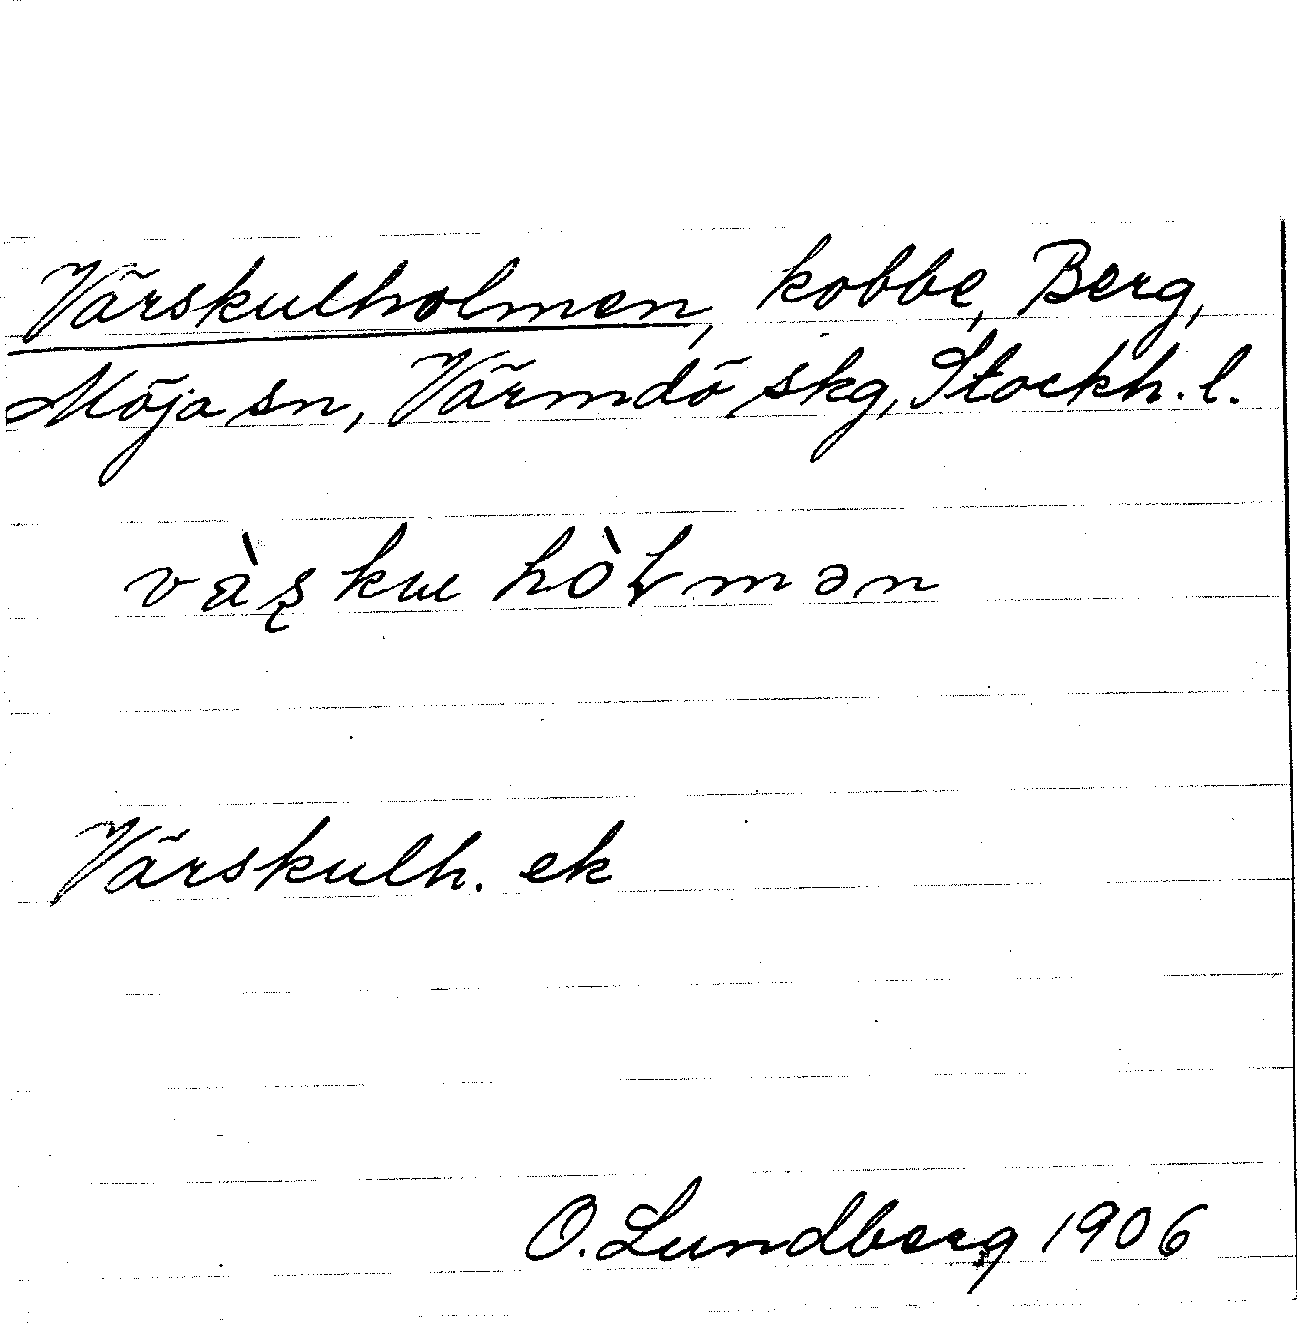 Värskulholmen, kobbe, Berg,
Möja sn, Värmdö skg, Stockh. l.
Värskulh. ek
O. Lundberg 1906